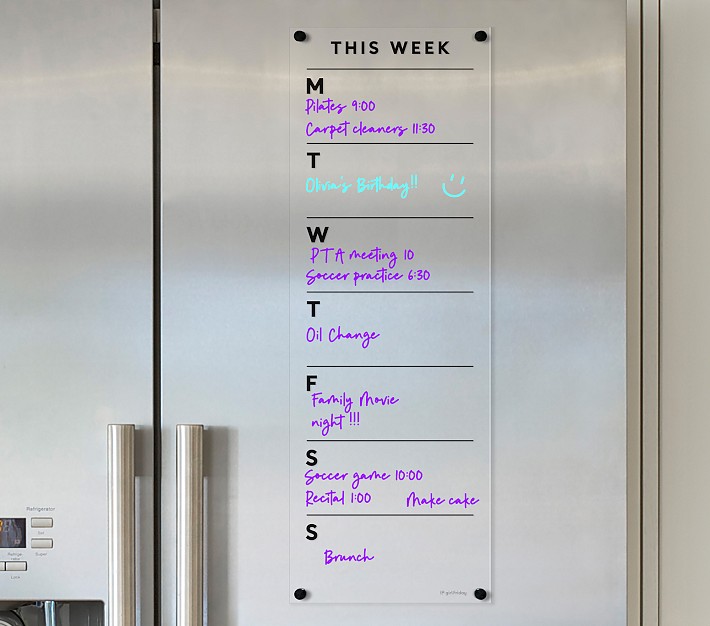 THIS WEEK
M
Pilates 9:00
Carpet cleaners 11:30
T
Olivia's Birthday!!
W
PTA meeting 10
Soccer practice 6:30
T
Oil Change
F
Family Movie
night !!!
S
Soccer game 10:00
Recital 1:00 Make cake
S
Brunch
Refrigerator
Super
Lock